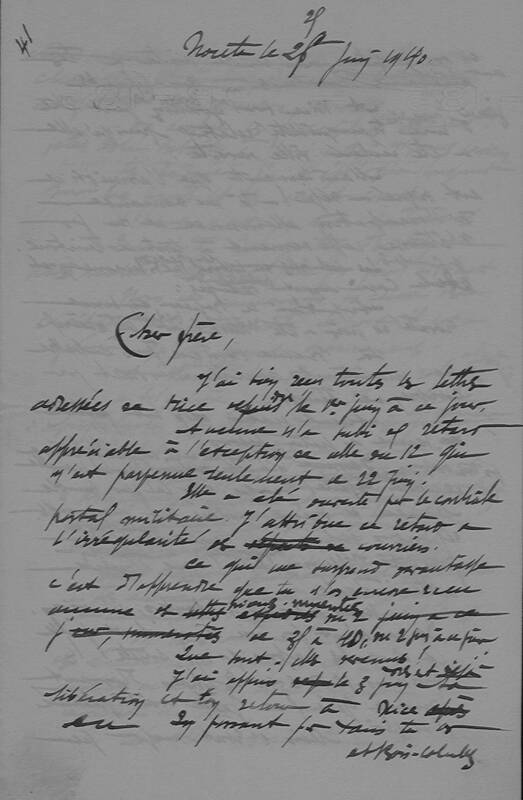 41
le 28 Juin 1940
Cher frère,
J'ai bien reçu toutes les lettres
adressées de Nice depuis le 1er juin à ce jour.
Aucune n'a subi de retard
appréciable à l'exception de celle du 12 qui
n'est parvenue seulement le 22 juin.
Elle a été ouverte par le contrôle
postal militaire. J'attribue ce retard à
l'irrégularité des courriers.
Ce qui me surprend davantage
c'est d'apprendre que tu n'as encore reçu
aucune de mes numérotées du 2 juin à ce
jour, numérotées de 31 à 40, du 2 juin à ce jour
Que sont-elles devenues!
J'ai appris le 3 juin ta
libération et ton retour à Nice
en passant par Paris
et Bois-Colombes